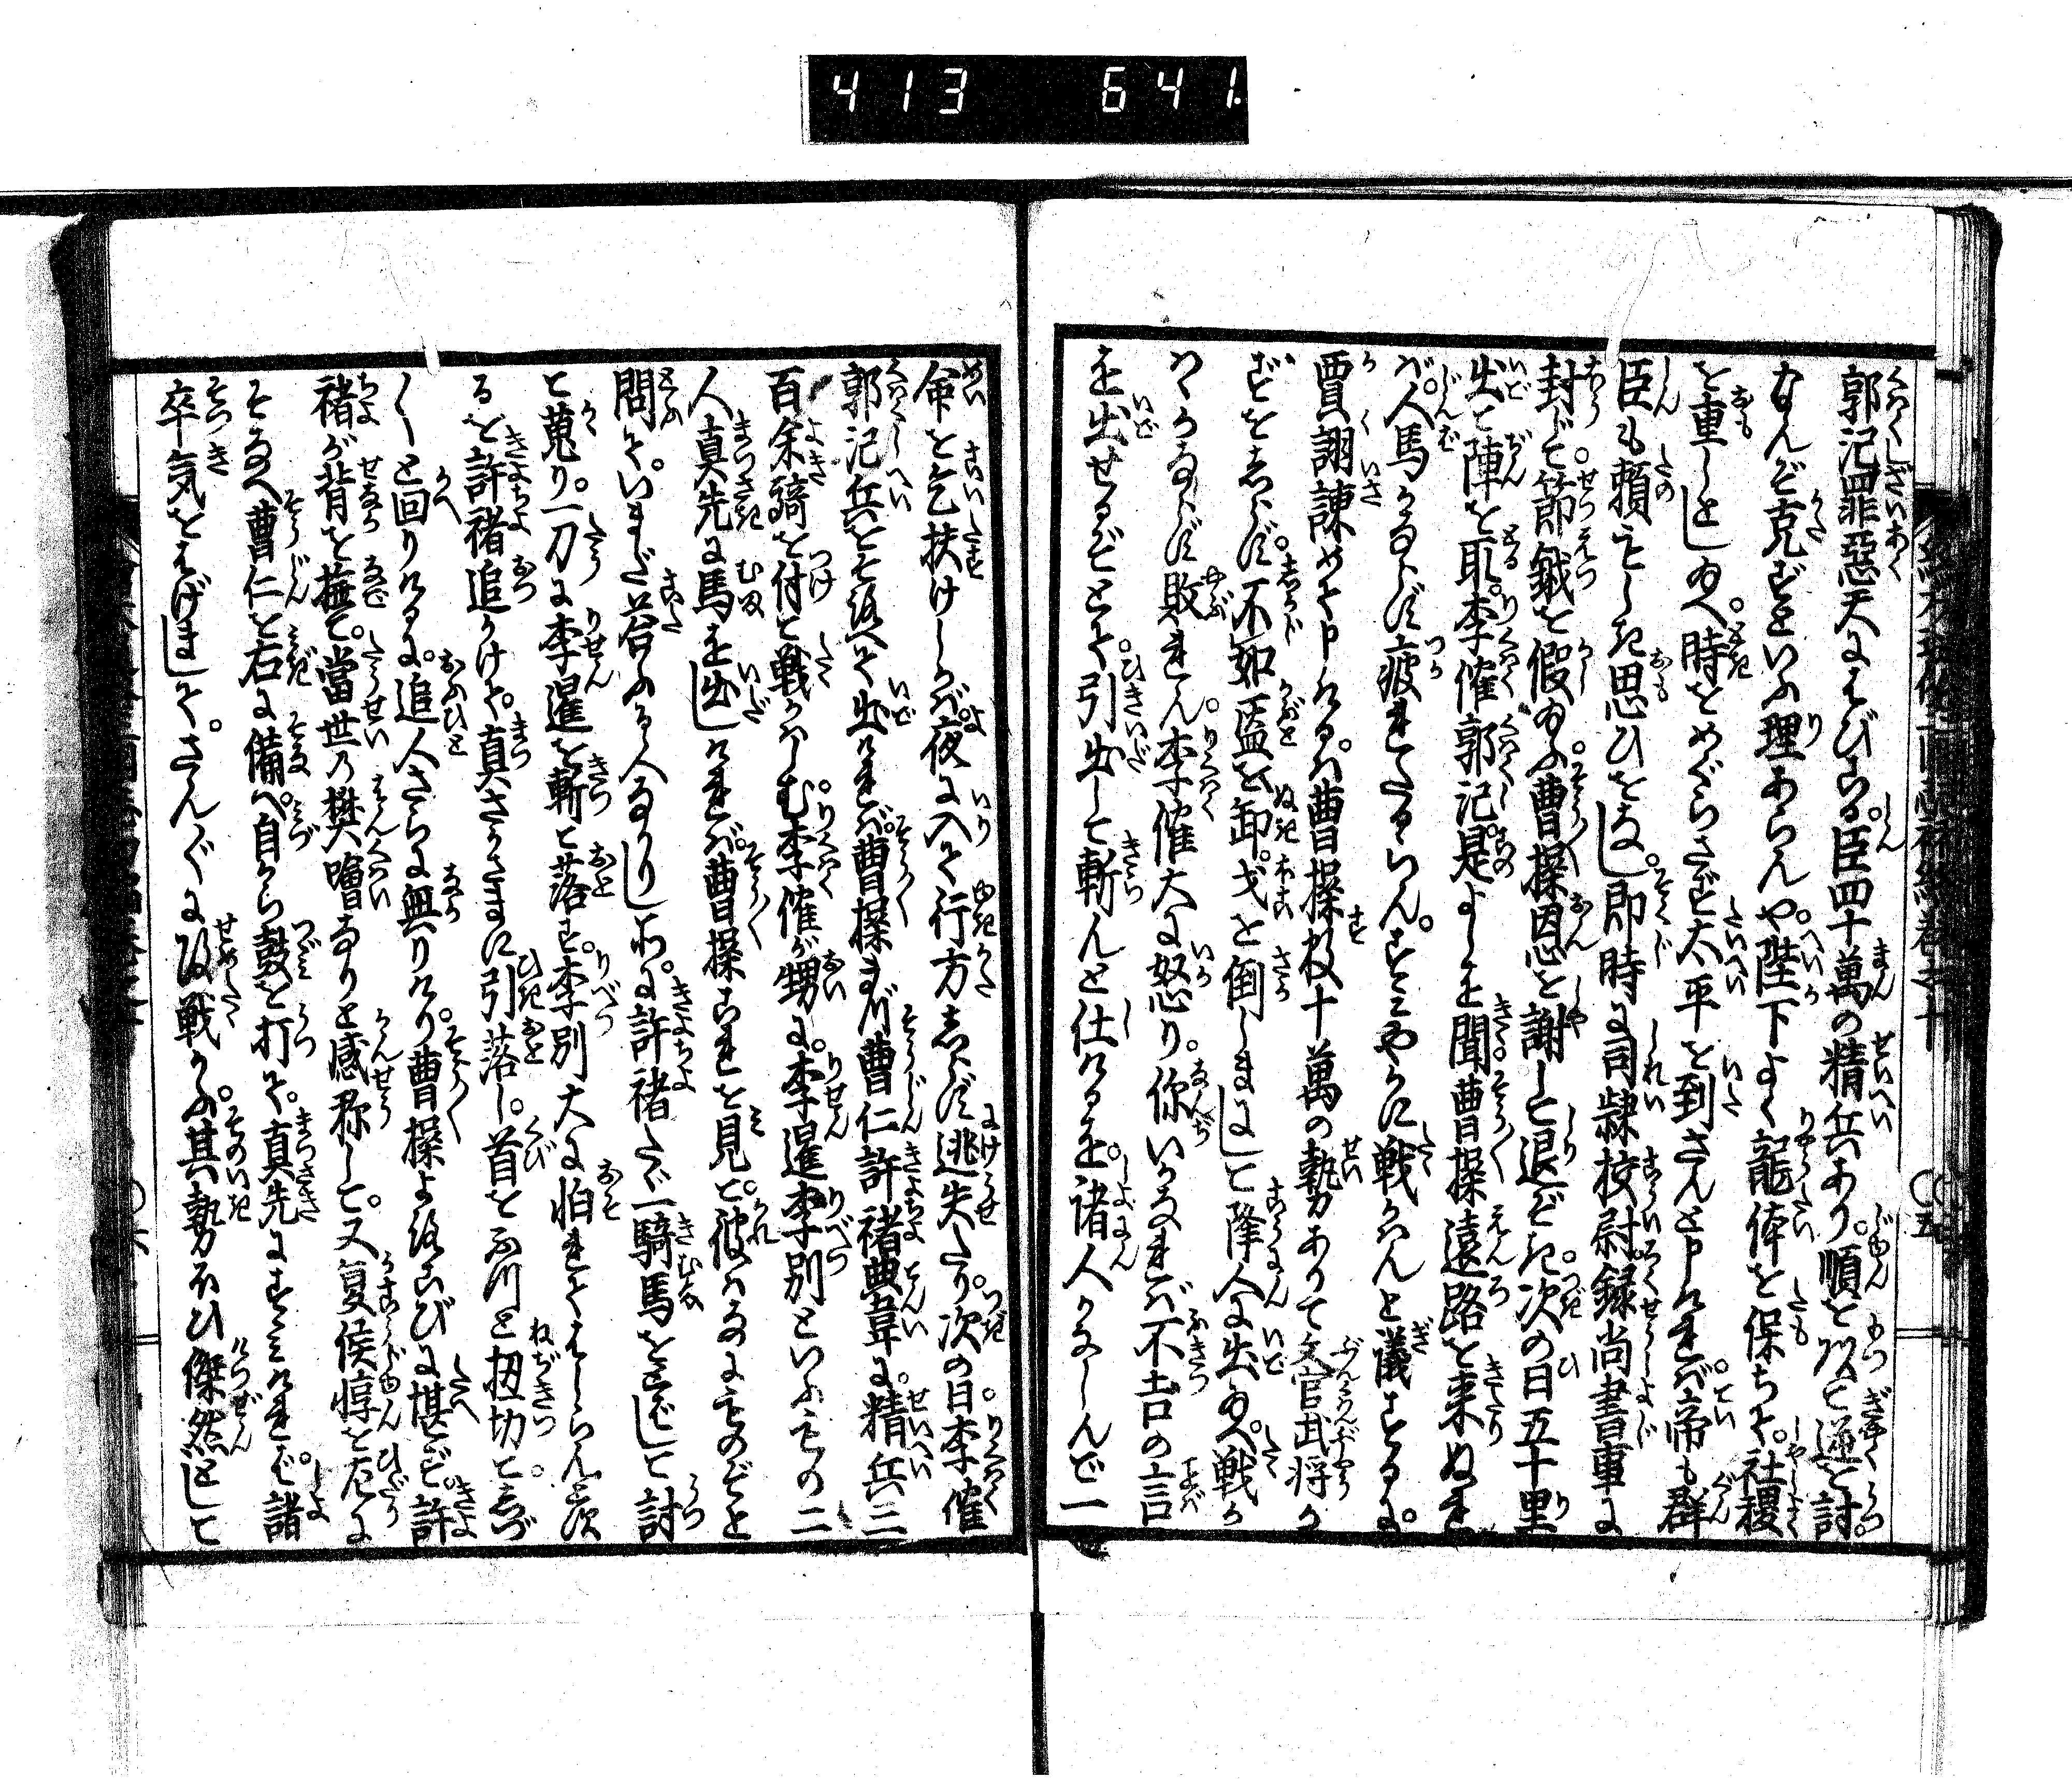 413 641.
郭汜罪惡天にはびこる。臣四十萬の精兵あり。順を以て逆を討。
なんど克ずといふ理あらんや。陛下よく龍体を保ちて。社稷
を重しとし
時をめぐらさず太平を到さんと申ければ。帝も群
臣も頼もしき思ひをなし。即時に司隷校尉。録尚書事に
封ぜ。節鉞を假ふ。曹操恩を謝して退ぞき。次の日五十里
出て陣を取。李傕郭汜是よしを聞。曹操遠路を来ぬれ
ば。人馬かならず疲れたるらん。すみやかに戦かはんと議するに。
賈詡諫めて申けるは。曹操数十萬の勢ありて文官武将か
ずをしらず。不如盔を卸。戈を倒しまにして降人に出
戦か
ばかならず敗れん。李傕大に怒り。你いかなれば不吉の言
を出せるぞとて。引出して斬んと仕けるを。諸人かなしんで一
命を乞扶けしかば。夜に入て行方しらず逃失たり。次の日。李傕
郭汜兵を
出ければ。曹操まづ曹仁許褚典韋に。精兵三
百余騎を付て戦かはしむ。李傕が甥に。李暹李別といふもの二
人真先に馬を出しければ。曹操これを見て。彼はなにものぞと
問て。いまだ荅ふる人なかりし所に。許褚たゞ一騎馬を
して討
て蒐り。一刀に李暹を斬て落す。李別大に怕れてはしらんとす
るを許褚追かけて。真さかさまに引落し。首をふつと扭切て。しづ
〳〵と回りけるに。追人さらに無りけり。曹操よろこびに堪ず。許
褚が背を撫て。當世の樊噲なりと感称して。又夏侯惇を左に
そなへ曹仁を右に備へ。自から鼓を打て。真先にすゝみければ。諸
卒気をはげまして。さんぐに改戦かふ。其勢ひ傑然として